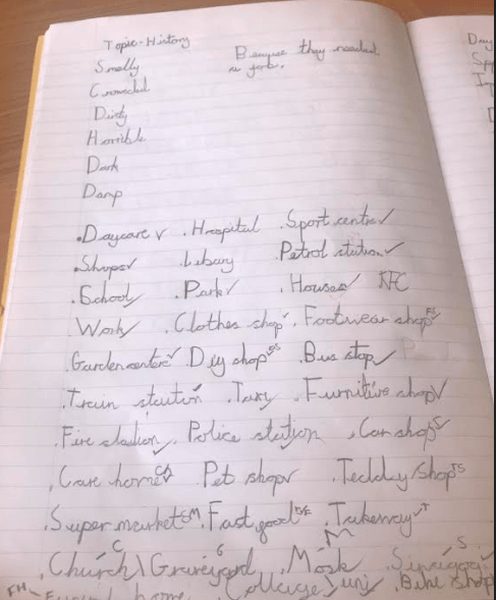 Topic-History
Smelly
Because they needed
a job.
Crowded
Dirty
Horrible
Dark
Damp
.Daycare ✓ .Hospital .Sport centre✓
.Shops✓ .Libary .Petrol station✓
.School✓ .Park✓ .Houses✓ KFC
.Work✓ .Clothes shop✓ .Footwear shop FS
.Garden centre✓ .Diy shop DS .Bus stop✓
.Train staition✓ .Taxy .Furnitire shop✓
.Fire staition✓ .Police station .Car shop S
.Care home CA .Pet shop✓ .Teddy shop TS
.Super market SM .Fast food .Takeway T
.Church C \ Graveyard G .Mosk M S
FH- home .Colleage \ uni .Bike shop